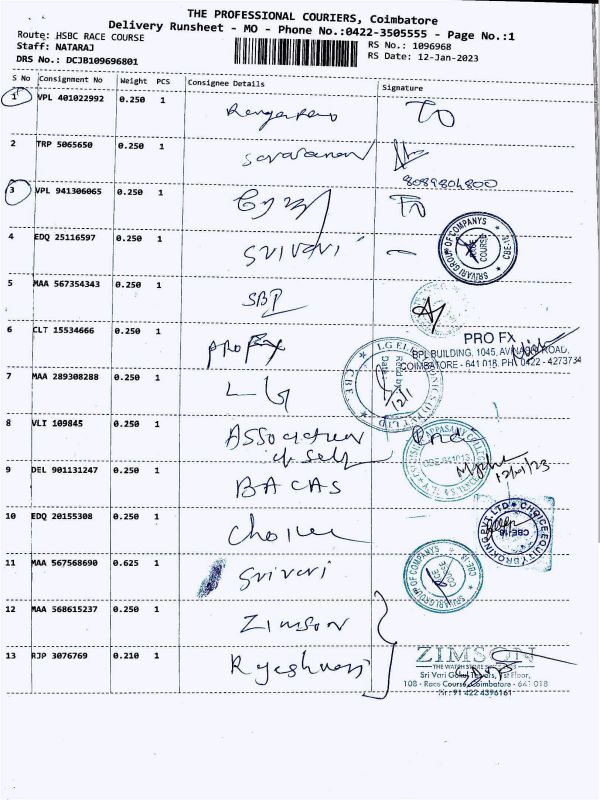 THE PROFESSIONAL COURIERS, Coimbatore
Delivery Runsheet - MO - Phone No.:0422-3505555 - Page No.:1
Route: HSBC RACE COURSE
RS No.: 1096968
Staff: NATARAJ
RS Date: 12-Jan-2023
DRS No.: DCJB109696801
S No Consignment No Weight PCS Consignee Details Signature
1 VPL 401022992 0.250 1
2 TRP 5065650 0.250 1
8089804800
3 VPL 941306065 0.250 1
4 EDQ 25116597 0.250 1 Srivari
SRIVARI GROUP OF COMPANYS CBE-18 RACE COURSE
5 MAA 567354343 0.250 1 SBI
6 CLT 15534666 0.250 1
PRO FX
BPL BUILDING, 1045, AVINASHI ROAD,
COIMBATORE - 641 018. PH 0422 - 4273734
7 MAA 289308288 0.250 1 LG
Recd by
Date
12/1
CBE
8 VLI 109845 0.250 1 Association
of self
CBE-641018
12/01/23
9 DEL 901131247 0.250 1 BACAS
10 EDQ 20155308 0.250 1 Choice
CHOICE EQUITY BROKING PVT LTD CBE-18
11 MAA 567568690 0.625 1 Srivari
SRIVARI GROUP OF COMPANYS CBE-18 RACE COURSE
12 MAA 568615237 0.250 1 Zimson
13 RJP 3076769 0.210 1
ZIMSON
Sri Vari Gokul Towers, 1st Floor,
108 - Race Course, Coimbatore - 641 018
Ph : 91 422 4396161